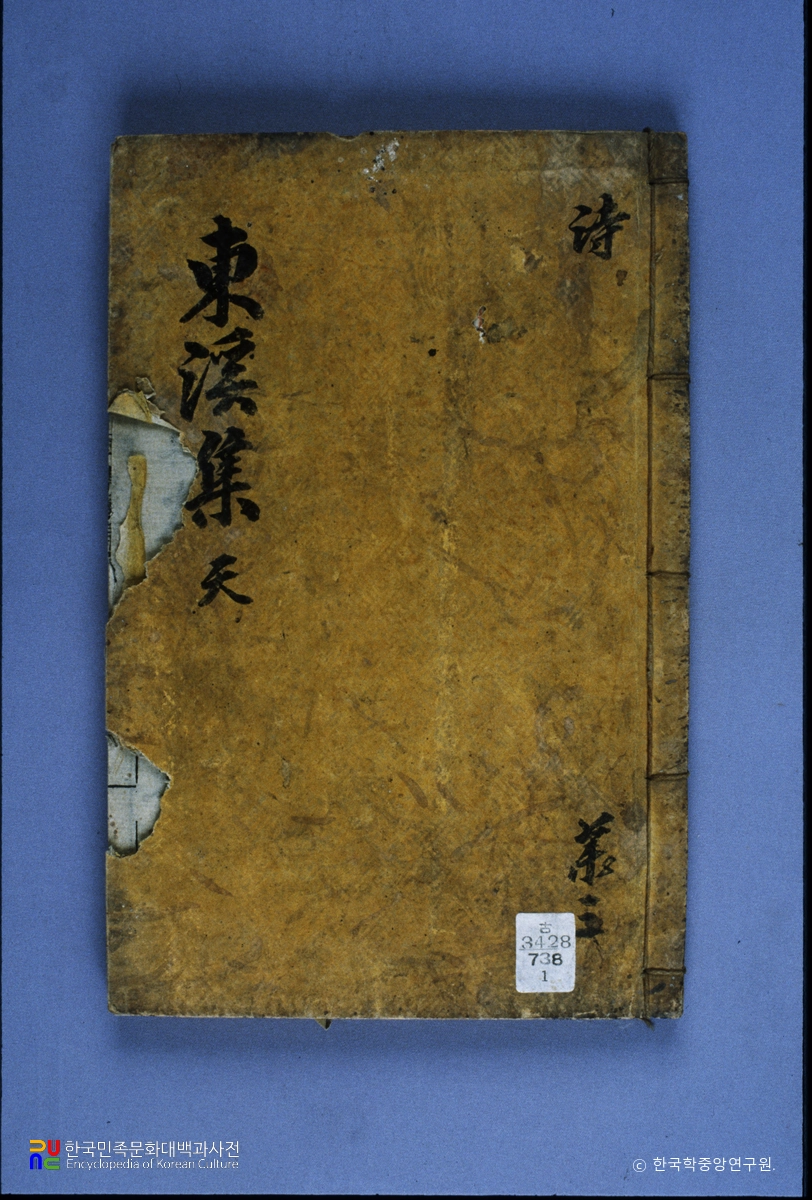 詩
東溪集 天
叢三
古
3428
738
1
한국민족문화대백과사전
Encyclopedia of Korean Culture
© 한국학중앙연구원.